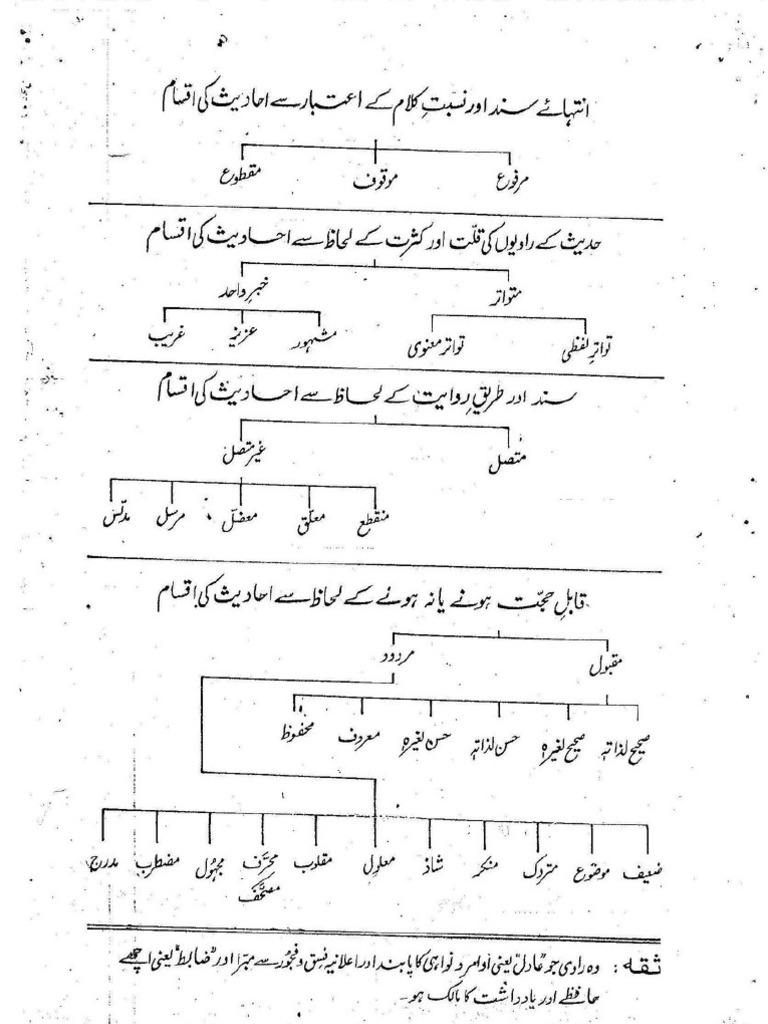 انتہائے سند اور نسبتِ کلام کے اعتبار سے احادیث کی اقسام
مرفوع موقوف مقطوع
حدیث کے راویوں کی قلّت اور کثرت کے لحاظ سے احادیث کی اقسام
متواتر خبرِ واحد
تواترِ لفظی تواتر معنوی مشہور عزیز غریب
سند اور طریقِ روایت کے لحاظ سے احادیث کی اقسام
متصل غیر متصل
منقطع معلّق معضل مرسل مدلّس
قابلِ حجّت ہونے یا نہ ہونے کے لحاظ سے احادیث کی اقسام
مقبول مردود
صحیح لذاتہٖ صحیح لغیرہٖ حسن لذاتہٖ حسن لغیرہٖ معروف محفوظ
ضعیف موضوع متروک منکر شاذ معلول مقلوب محرَّف مجہُول مضطرب مدرج
مصحَّف
ثقہ : وہ راوی جو عادل یعنی اوامر و نواہی کا پابند اور اعلانیہ فسق و فجُور سے مبرّا اور "ضابط" یعنی اچھے
حافظے اور یادداشت کا مالک ہو۔